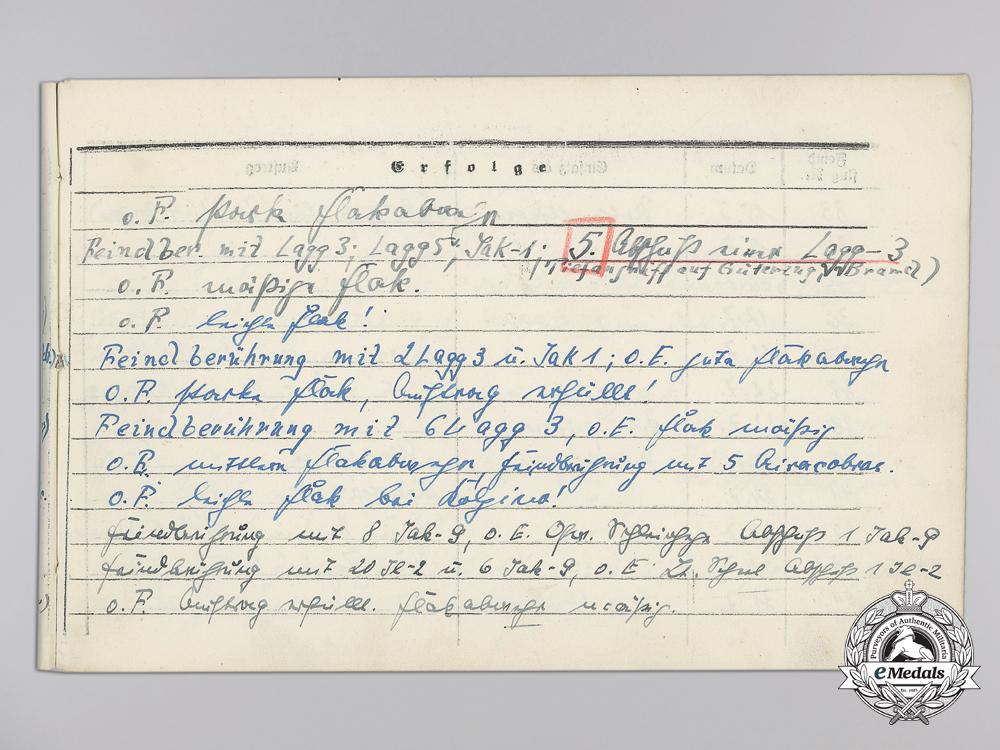 Erfolge
o. F. starke Flakabwehr
Feindber. mit Lagg 3; Lagg 5, Jak-1; 5. Abschuß einer Lagg-3
(Tiefangriff auf Güterzug, in Brand)
o. F. mäßige Flak.
o. F. leichte Flak!
Feindberührung mit 2 Lagg 3 u. Jak 1; o. E. gute Flakabwehr
o. F. starke Flak, Auftrag erfüllt!
Feindberührung mit 6 Lagg 3, o. E. Flak mäßig
o. F. mittlere Flakabwehr, Feindberührung mit 5 Airacobras.
o. F. leichte Flak bei Kolpino!
Feindberührung mit 8 Jak-9, o. E. Abschuß 1 Jak-9
Feindberührung mit 20 Il-2 u. 6 Jak-9, o. E. Lt. Abschuß 1 Il-2
o. F. Auftrag erfüllt. Flakabwehr mäßig.
Purveyors of Authentic Militaria
eMedals